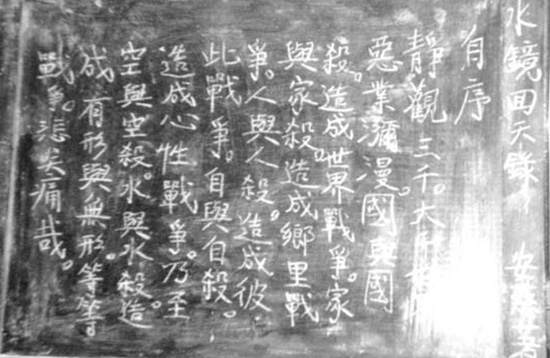 水鏡回天錄
自序
靜觀三千。大
惡業瀰漫。國與國
殺。造成世界戰爭。家
與家殺。造成鄉里戰
爭。人與人殺。造成彼
此戰爭。自與自殺。
造成心性戰爭。乃至
空與空殺。水與水殺。造
成有形與無形。等等
戰爭。悲矣痛哉。